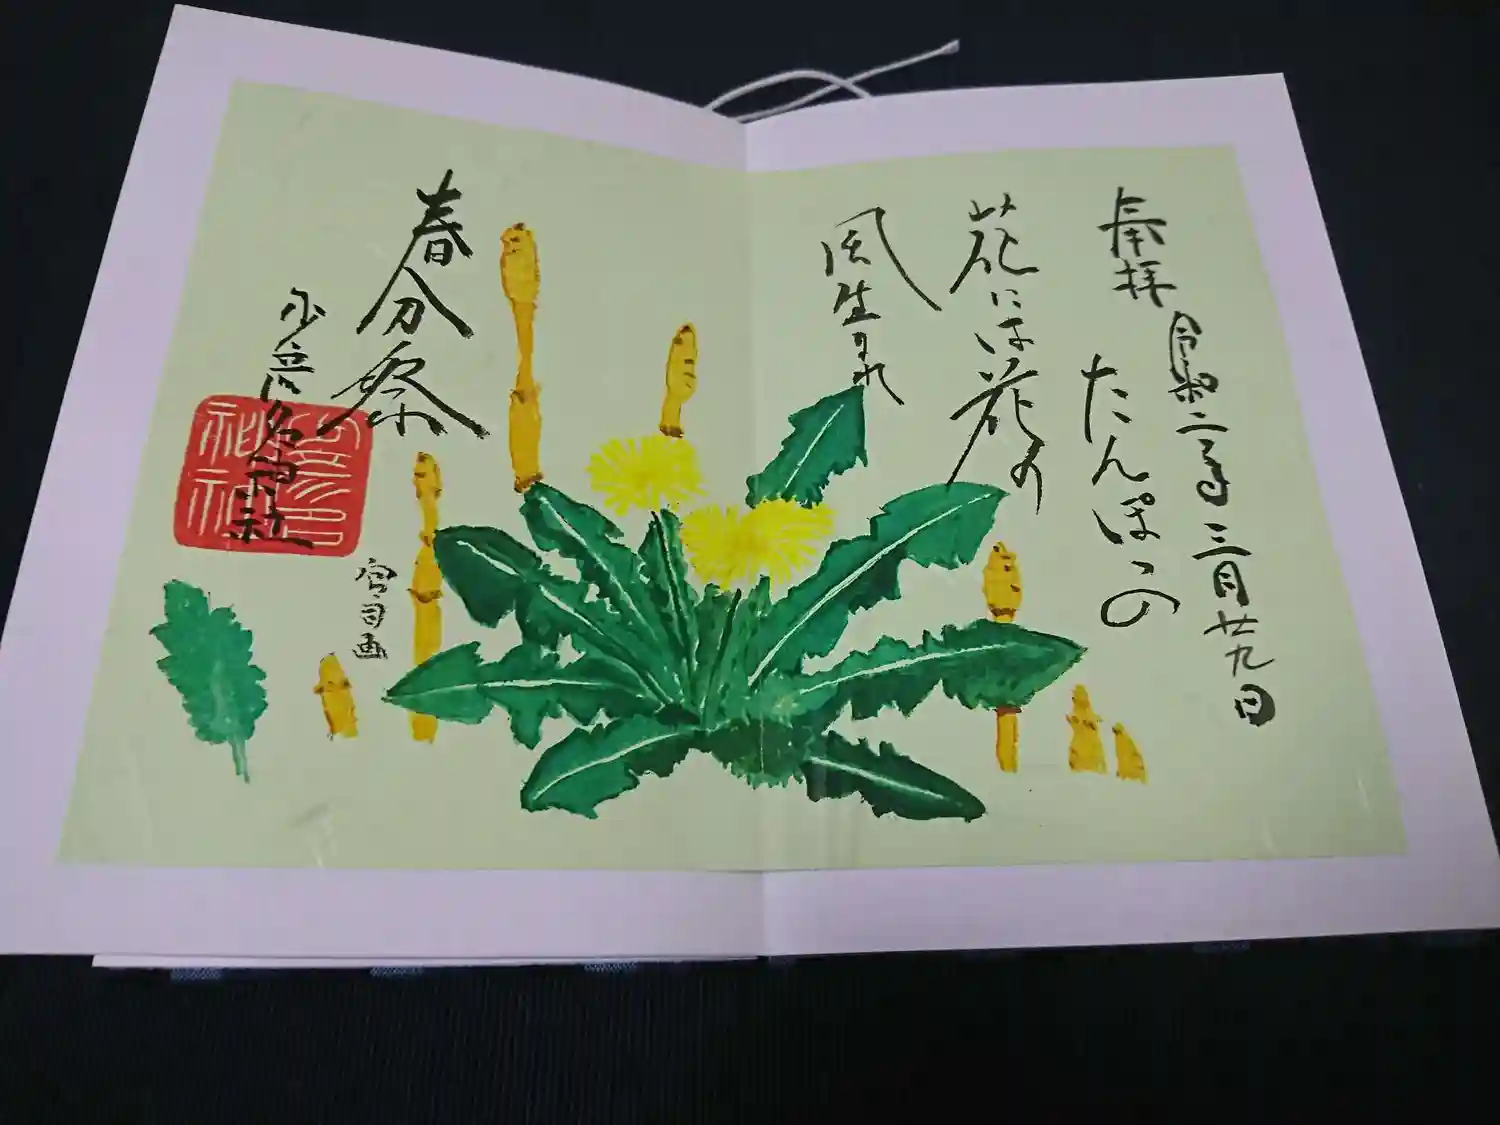 奉拝 令和二年三月廿九日
たんぽぽの
花には花の
風生まれ
春分祭
宮司画